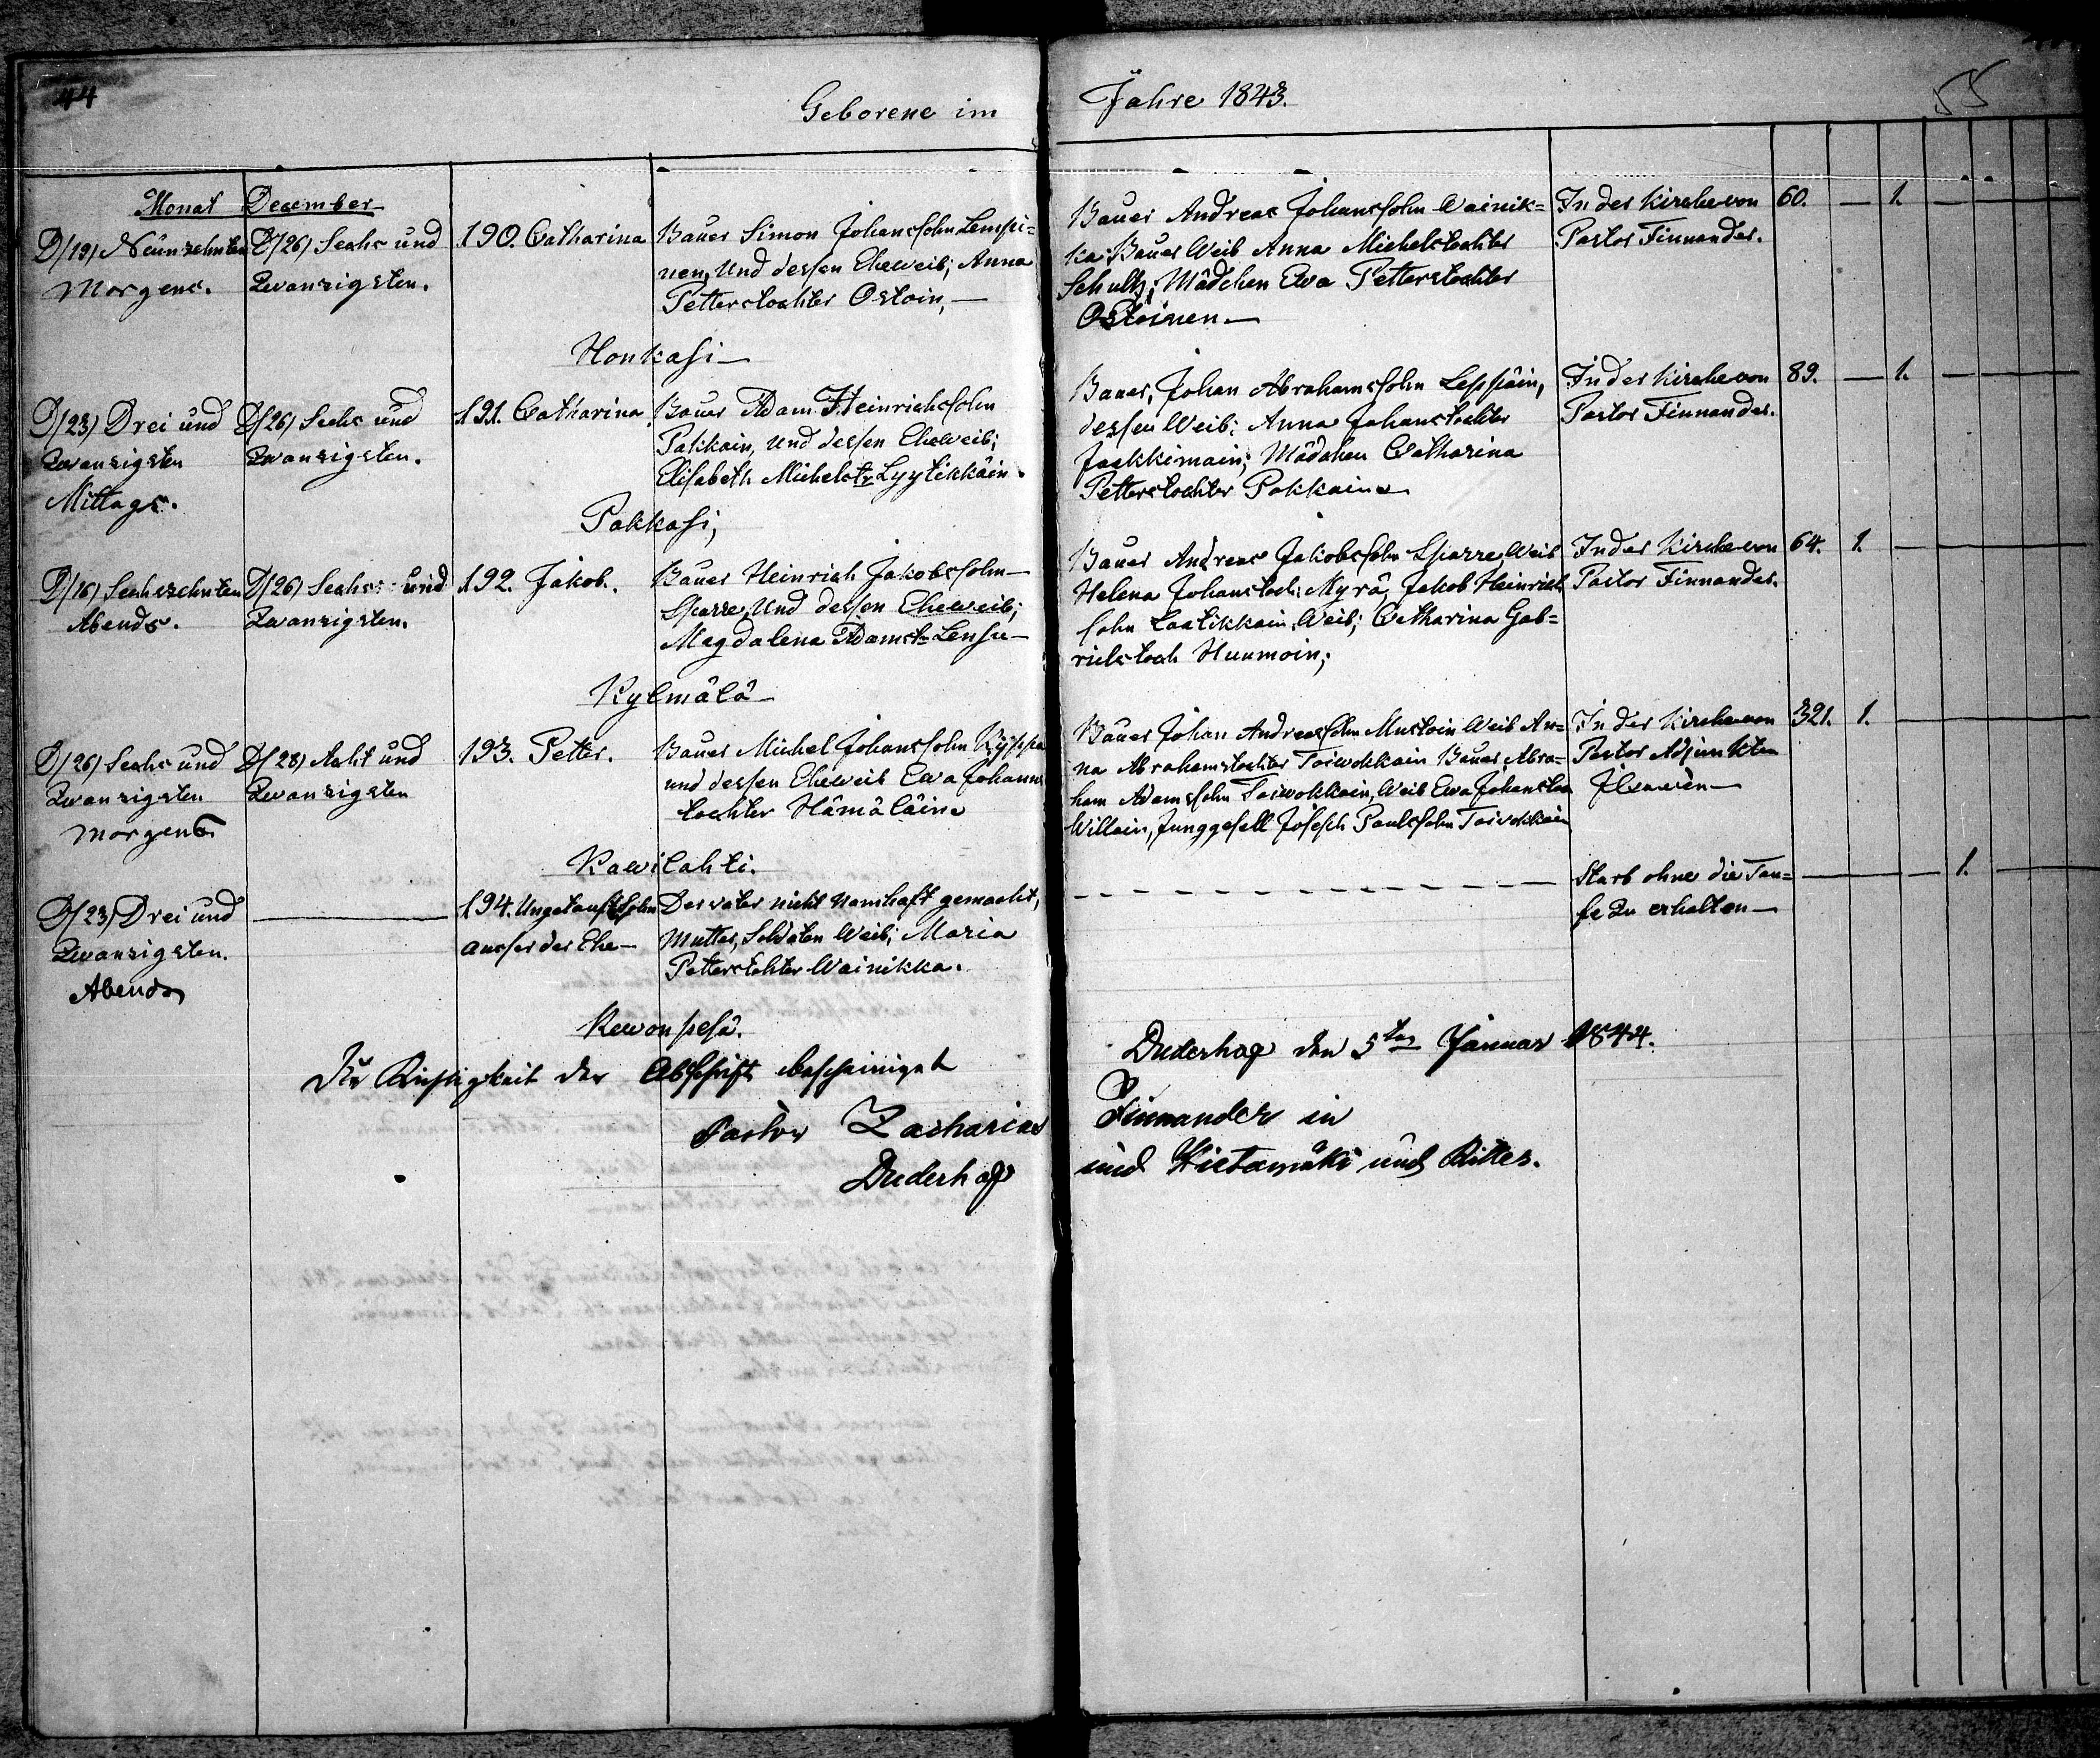 44
Geborene im Jahre 1843.
55
Monat December
D/19) Neünzehnten
Morgens.
D/26) Sechs und
Zwanzigsten.
190. Catharina
Bauer Simon Johanssohn Lempi=
nen, Und dessen Eheweib; Anna
Petterstochter Ostoin,—
Bauer Andreas Johanssohn Wainik=
ka; Bauer Weib Anna Michelstochter
Schultz; Mädchen Ewa Petterstochter
Ostoinen.—
In der Kirche von
Pastor Finnander.
60. — 1. —
Honkasi—
D/23) Drei und
Zwanzigsten
Mittags.
D/26) Sechs und
Zwanzigsten.
191. Catharina
Bauer Adam Heinrichssohn
Pakkain, und dessen Eheweib;
Elisabeth Michelstr Lyytikkäin.
Bauer, Johan Abrahamssohn Leppäin,
dessen Weib: Anna Johanstochter
Jaakkimain; Mädchen Catharina
Petterstochter Pakkain
In der Kirche von
Pastor Finnander.
89. — 1. —
Pakkasi;
D/16) Sechszehnten
Abends.
D/26) Sechs und
Zwanzigsten.
192. Jakob.
Bauer Heinrich Jakobssohn—
Sparre, Und dessen Eheweib;
Magdalena Adamstr Lensu—
Bauer Andreas Jakobssohn Sparre, Weib
Helena Johanstoch: Myrä, Jakob Heinrich
sohn Laatikkain, Weib; Catharina Gab=
rielstoch Huumoin;
In der Kirche von
Pastor Finnander.
64. 1. —
Kylmälä—
D/26) Sechs und
Zwanzigsten
Morgens
D/28) Acht und
Zwanzigsten
193. Petter.
Bauer Michel Johanssohn Kyppa
und dessen Eheweib Ewa Johanns
tochter Hämäläine
Bauer Johan Andreassohn Mustoin Weib An=
na Abrahamstochter Toiwokkain Bauer Abra=
ham Adamssohn Toiwokkain, Weib Ewa Johanstoc
Willain, Junggesell Joseph Paulssohn Toiwokkain
In der Kirche von
Pastor Adjunkten
321. 1. —
Kawilahti.
D/23) Drei und
Zwanzigsten.
Abends
194. Ungetauft Sohn
ausser der Ehe—
Der vater nicht Namhaft gemacht,
Mutter, Soldaten Weib; Maria
Petterstohter Wainikka.
Starb ohne die Tau=
fe Zu erhalten—
1.
Rewonpesä.
Die Richtigkeit der Abschrift bescheiniget
Duderhof den 5ten Januar 1844.
Pastor Zacharias Finnander in
Duderhof und Hietamäki und Ritter.